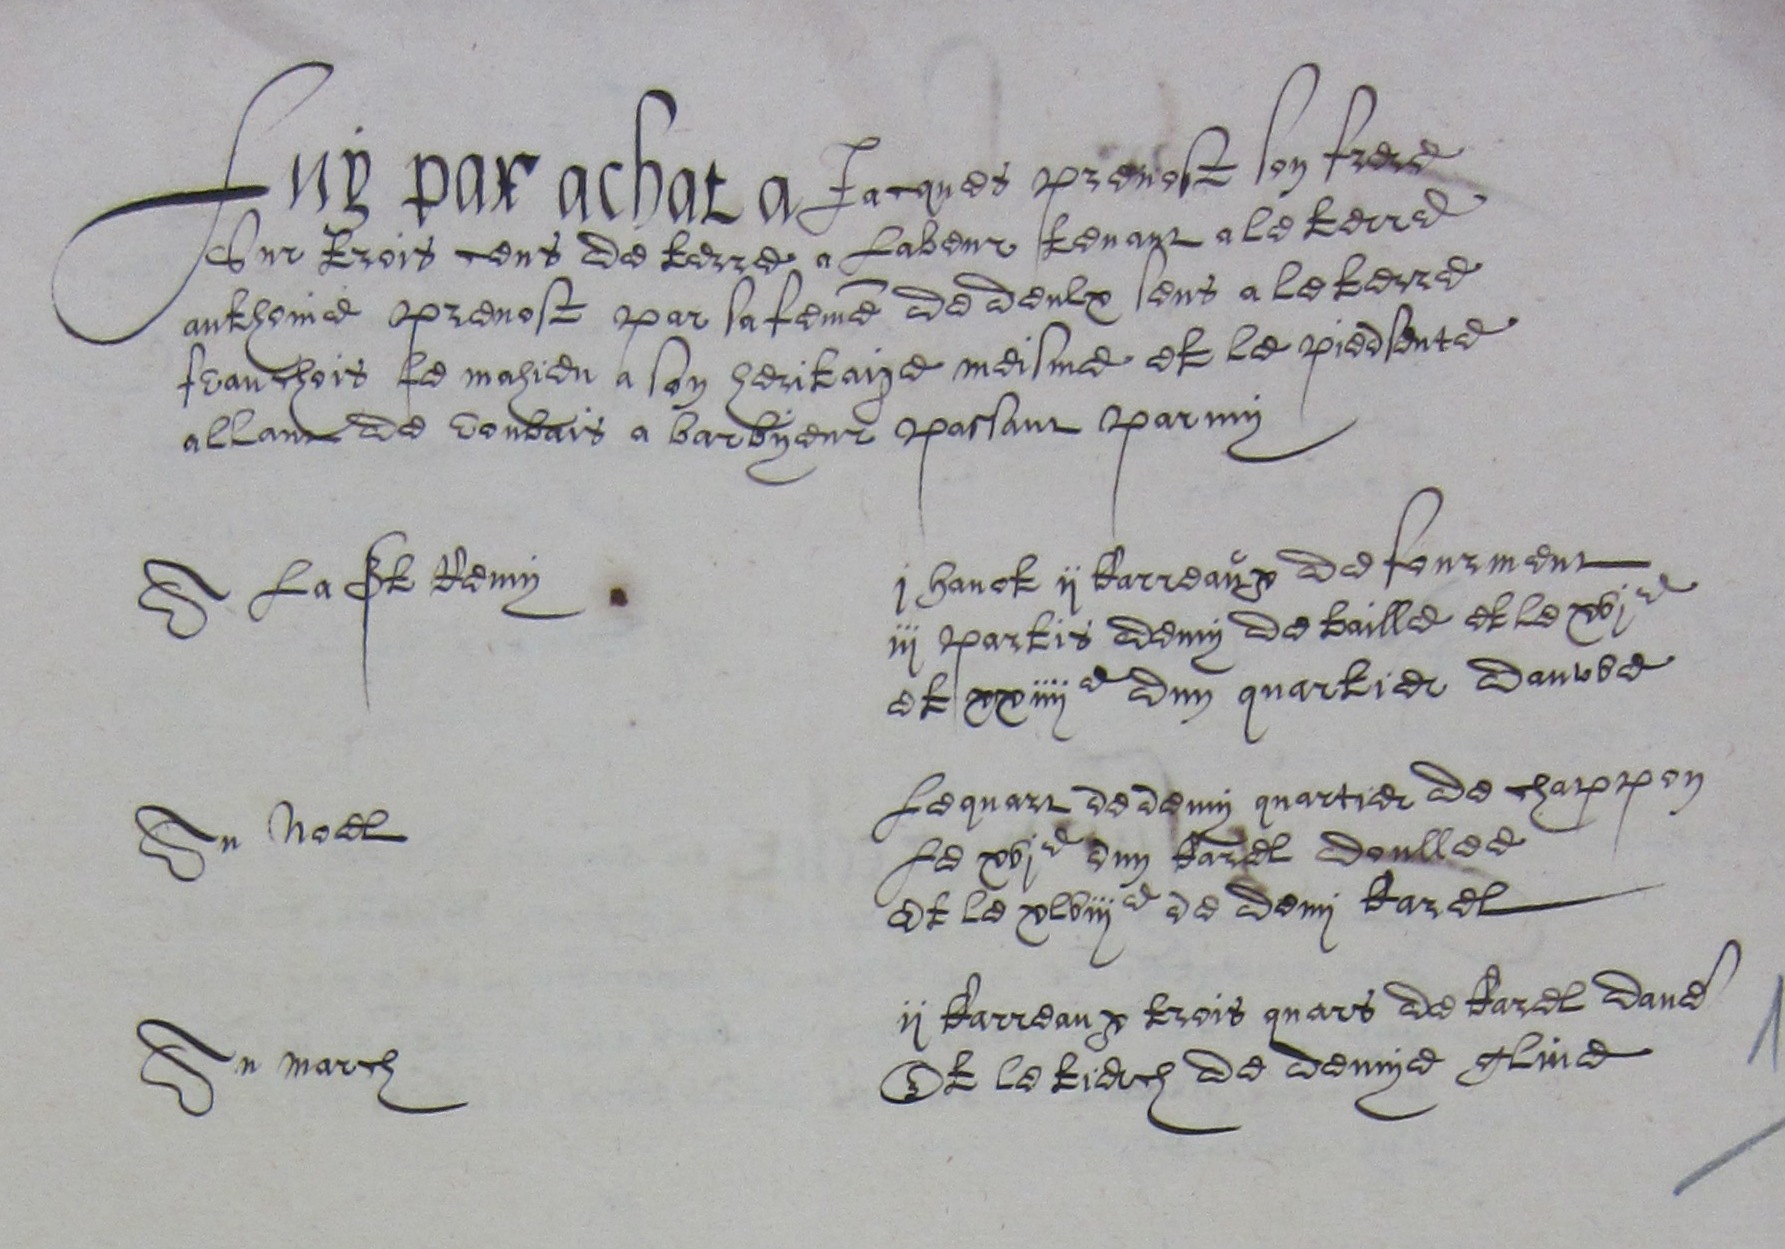 Luy par achat a Jacques prevost son frere
Sur trois cens de terre a labeur tenant a le terre
anthoine prevost par sa feme de deulx sens a le terre
franchois le mahieu a son heritaige meisme et le piedsente
allant de Roubais a barbyeur passant parmy
A La St Remy
j havot ij karreaux de fourment
iij partis demy de baille et le xvje
et xxiiije dun quartier dauwe
Au Noel
Le quart de demy quartier de chappon
Le xvje dun karel doullee
et le xlviije de demi karel
Au march
ij karreaux trois quars de karel dave
Et le tierch de demye gline